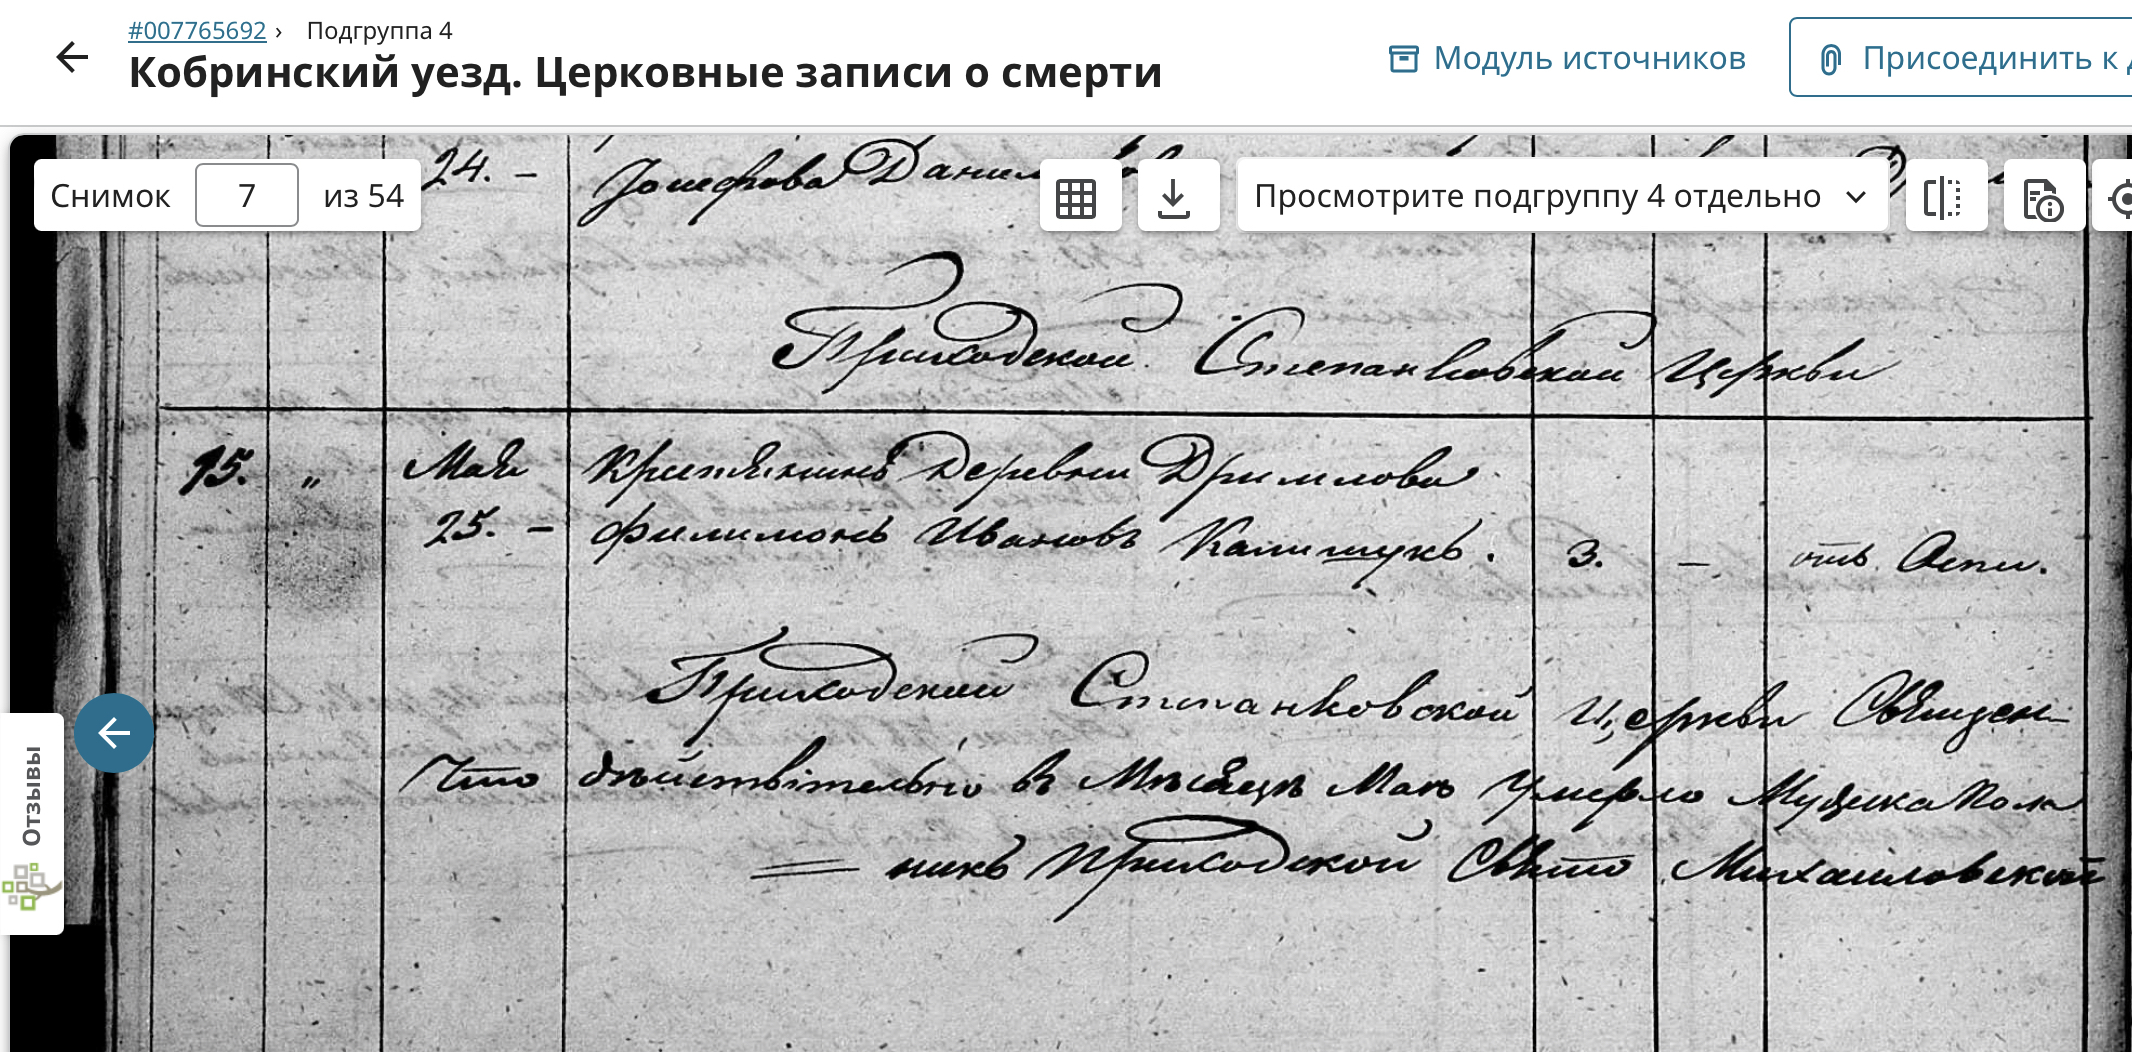 #007765692 › Подгруппа 4
Кобринский уезд. Церковные записи о смерти
Модуль источников
Присоединить к
Снимок 7 из 54
Просмотрите подгруппу 4 отдельно
Отзывы
24. —
Приходской Степанковской Церкви
15. „ Мая Крестьянинъ Деревни
25. — Филимонъ Ивановъ Калишукъ. 3. — отъ Оспи.
Приходской Степанковской Церкви Священ-
Что действительно въ Месяце Мае Умерло Мужеска Пола
никъ Приходской Свято Михаиловской